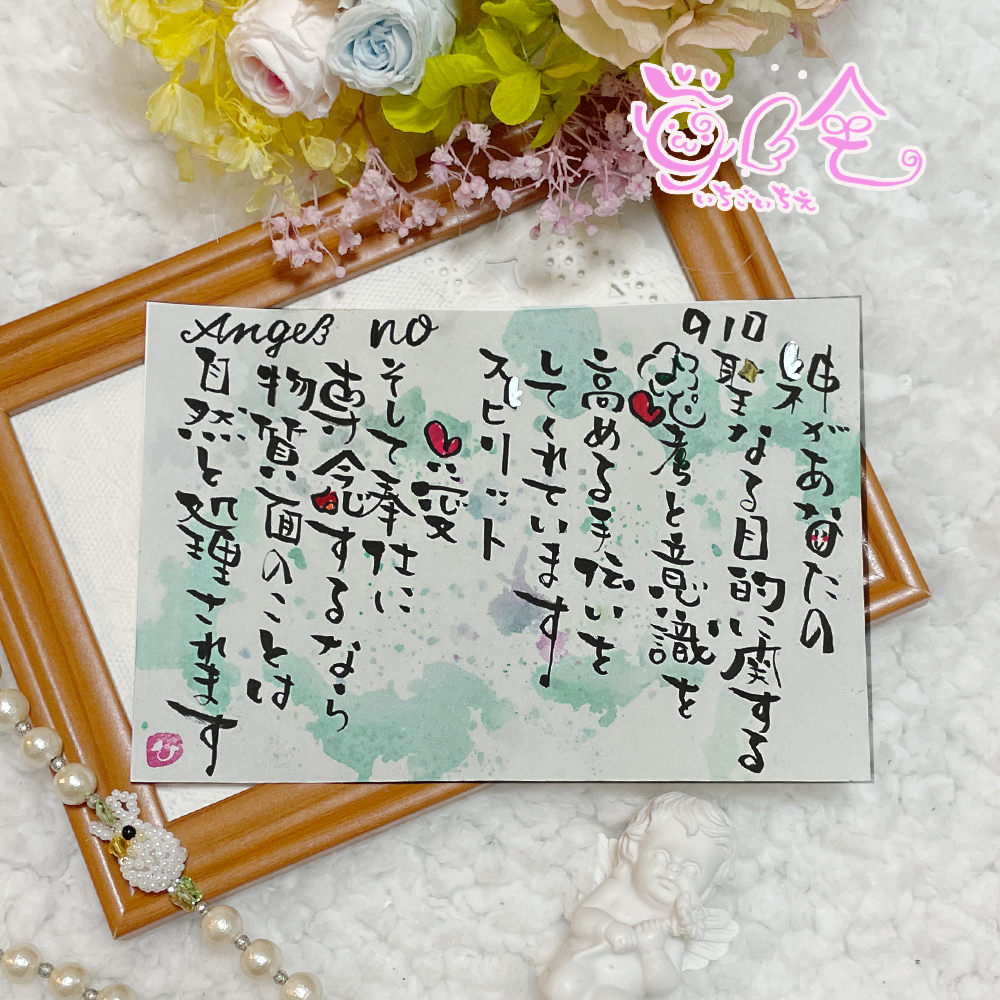 Angel no 910
神があなたの
聖なる目的に関する
思考と意識を
高める手伝いを
してくれています
スピリット
愛
そして奉仕に
専念するなら
物質面のことは
自然と処理されます
いちごいちえ